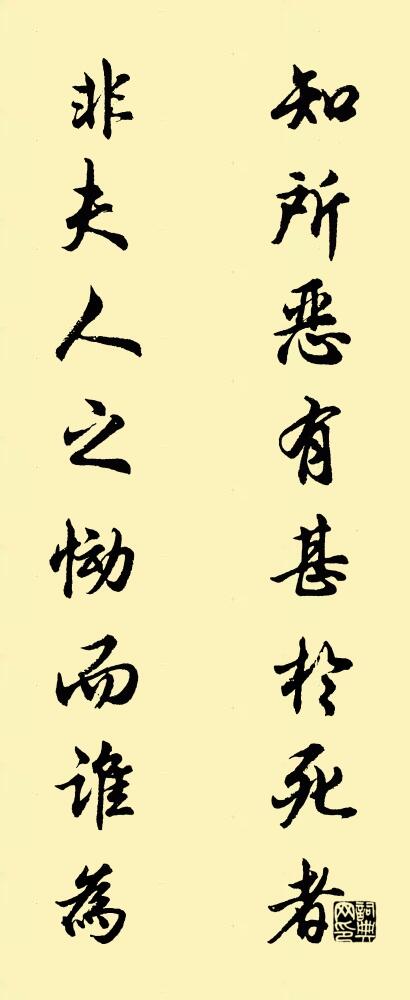 知所恶有甚於死者
非夫人之恸而谁為
詞典网印